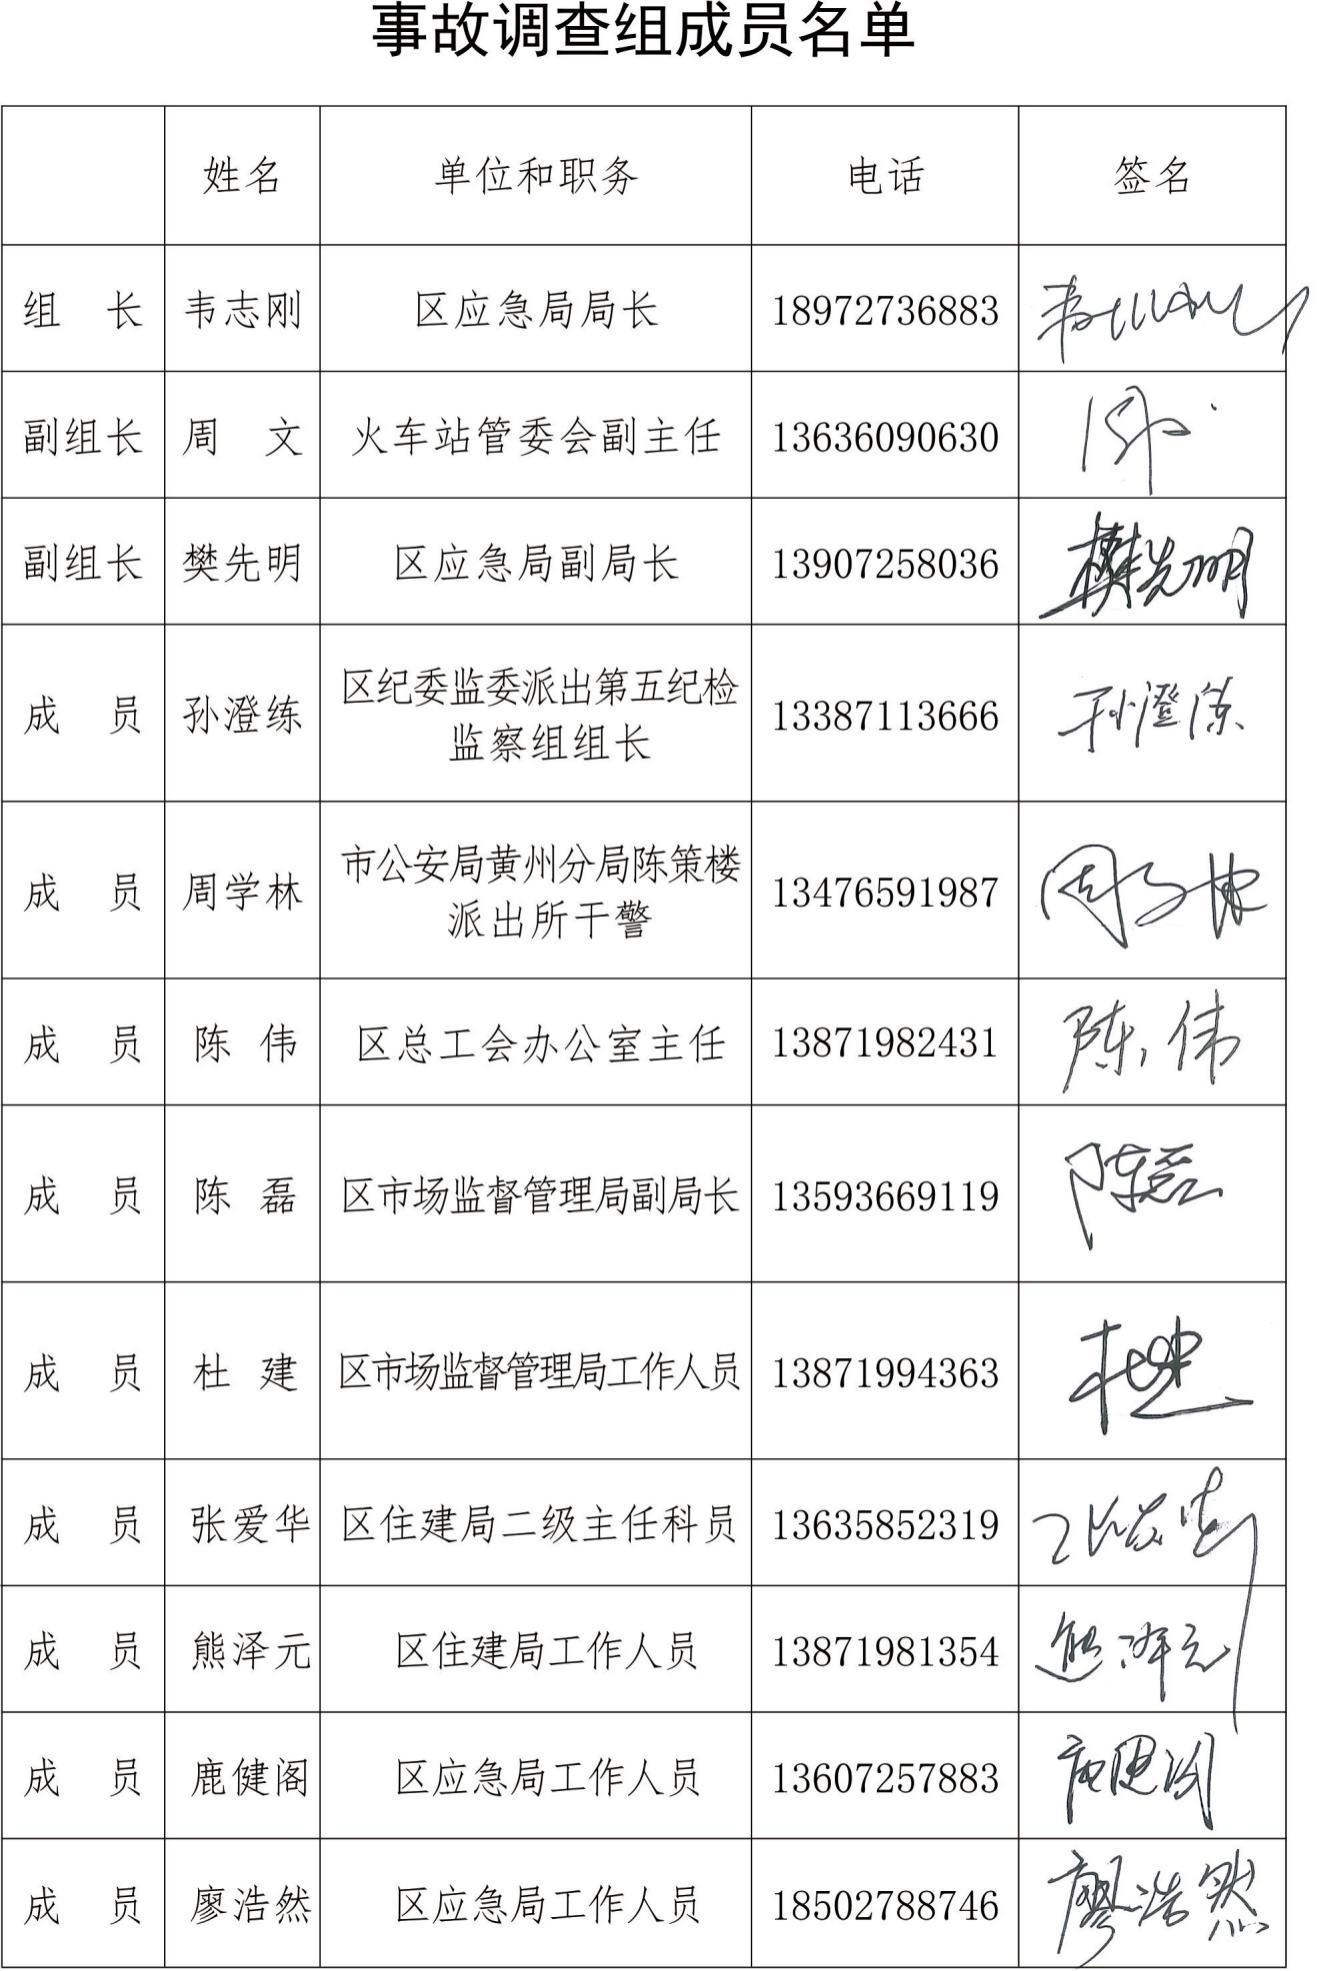 事故调查组成员名单
姓名 单位和职务 电话 签名
组 长 韦志刚 区应急局局长 18972736883
副组长 周 文 火车站管委会副主任 13636090630
副组长 樊先明 区应急局副局长 13907258036 樊先明
成 员 孙澄练 区纪委监委派出第五纪检
监察组组长 13387113666 孙澄练
成 员 周学林 市公安局黄州分局陈策楼
派出所干警 13476591987 周学林
成 员 陈 伟 区总工会办公室主任 13871982431 陈伟
成 员 陈 磊 区市场监督管理局副局长 13593669119 陈磊
成 员 杜 建 区市场监督管理局工作人员 13871994363 杜建
成 员 张爱华 区住建局二级主任科员 13635852319
成 员 熊泽元 区住建局工作人员 13871981354 熊泽元
成 员 鹿健阁 区应急局工作人员 13607257883 鹿健阁
成 员 廖浩然 区应急局工作人员 18502788746 廖浩然